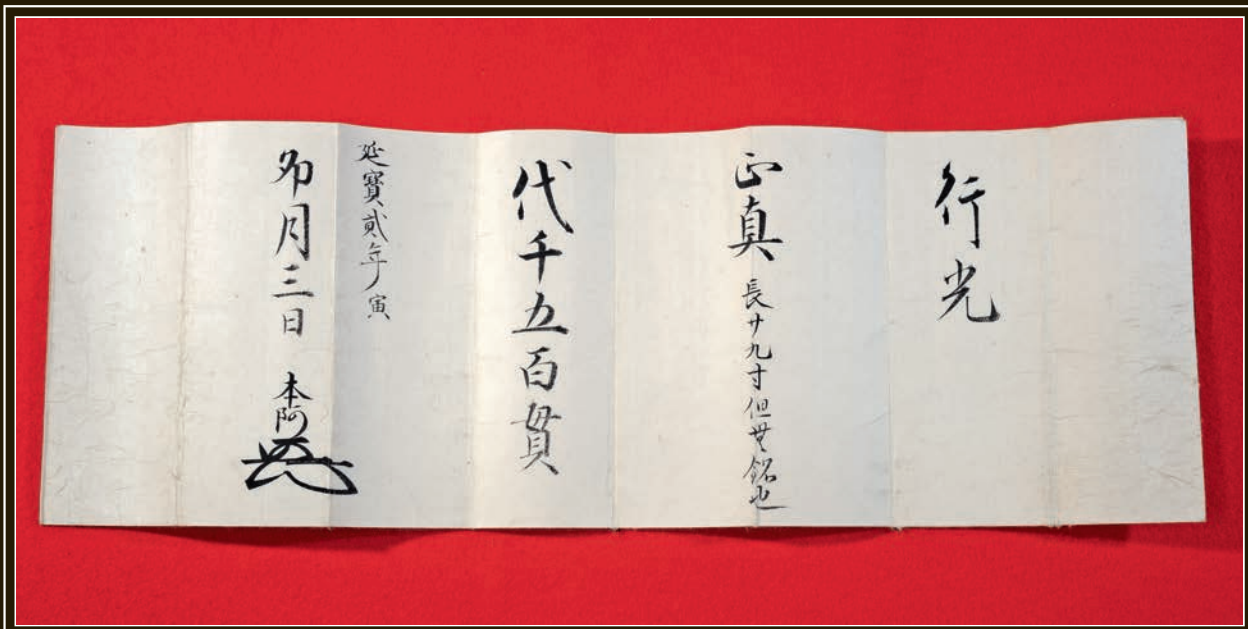 行光
正真 長サ九寸但無銘也
代千五百貫
延寶貳年寅
夘月三日 本阿